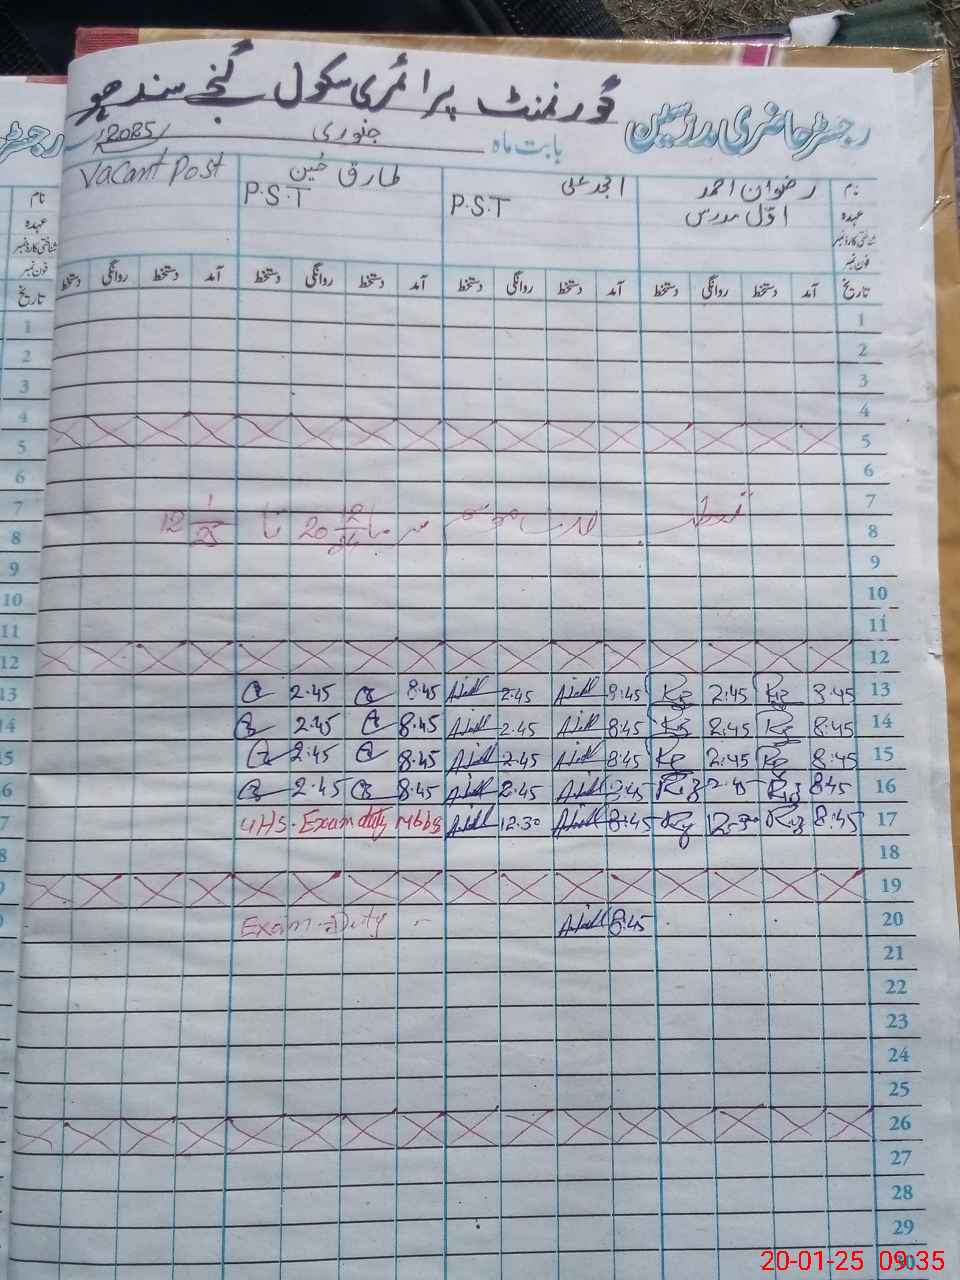 گورنمنٹ پرائمری سکول گنجے سندھو
رجسٹر حاضری مدرسین
بابت ماہ جنوری 2025
نام رضوان احمد امجد علی طارق حسین Vacant Post
عہدہ اوّل مدرس P.S.T P.S.T
شناختی کارڈ نمبر
فون نمبر
تاریخ آمد دستخط روانگی دستخط آمد دستخط روانگی دستخط آمد دستخط روانگی دستخط آمد دستخط روانگی دستخط
1
2
3
4
5
6
7
8 تعطیلات موسم سرما 20 12/24 تا 12 1/25
9
10
11
12
13 8:45 2:45 8:45 2:45 8:45 2:45
14 8:45 2:45 8:45 2:45 8:45 2:45
15 8:45 2:45 8:45 2:45 8:45 2:45
16 8:45 2:45 8:45 2:45 8:45 2:45
17 8:45 12:30 8:45 12:30 Exam duty
18
19
20 8:45 Exam Duty
21
22
23
24
25
26
27
28
29
30
20-01-25 09:35